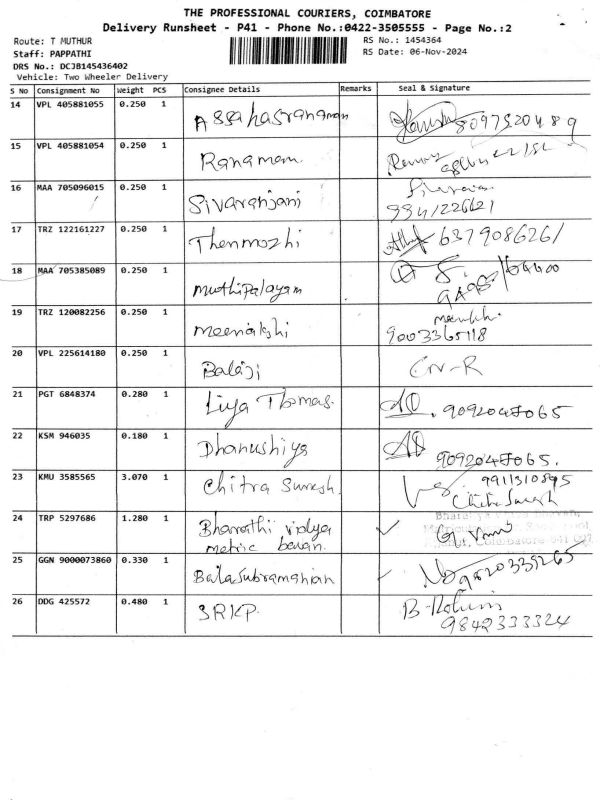 THE PROFESSIONAL COURIERS, COIMBATORE
Delivery Runsheet - P41 - Phone No.:0422-3505555 - Page No.:2
Route: T MUTHUR
RS No.: 1454364
Staff: PAPPATHI
RS Date: 06-Nov-2024
DRS No.: DCJB145436402
Vehicle: Two Wheeler Delivery
S No Consignment No Weight PCS Consignee Details Remarks Seal & Signature
14 VPL 405881055 0.250 1
15 VPL 405881054 0.250 1 Ranamam
16 MAA 705096015 0.250 1 Sivaranjani
9941226621
17 TRZ 122161227 0.250 1 Thenmozhi 6379086261
18 MAA 705385089 0.250 1 muthipalayam
19 TRZ 120082256 0.250 1 meenakshi
9003365118
20 VPL 225614180 0.250 1 Balaji CN-R
21 PGT 6848374 0.280 1 Liya Thomas. 9092047065
22 KSM 946035 0.180 1 Dhanushiya 9092047065.
23 KMU 3585565 3.070 1 Chitra Suresh. 9911310895
Chitra Suresh
24 TRP 5297686 1.280 1 Bharathi vidya
metric bavan.
25 GGN 9000073860 0.330 1 BalaSubramanian 9820339265
26 DDG 425572 0.480 1 SRKP. B-Rohini
9842333324